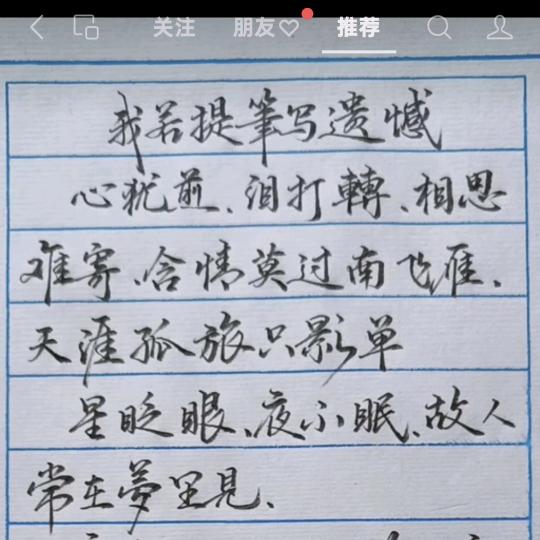 关注 朋友♡ 推荐
我若提筆写遗憾
心犹煎、泪打轉、相思
难寄、含情莫过南飞雁、
天涯孤旅只影单
星眨眼、夜不眠、故人
常在夢里見、